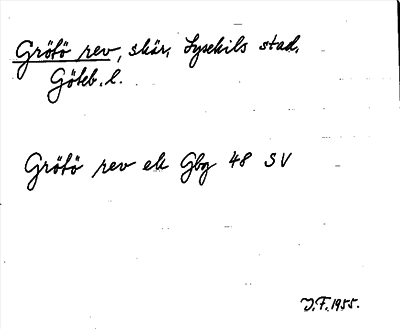 Grötö rev, skär, Lysekils stad,
Göteb. l.
Grötö rev ek Gbg 48 SV
J.F. 1955.